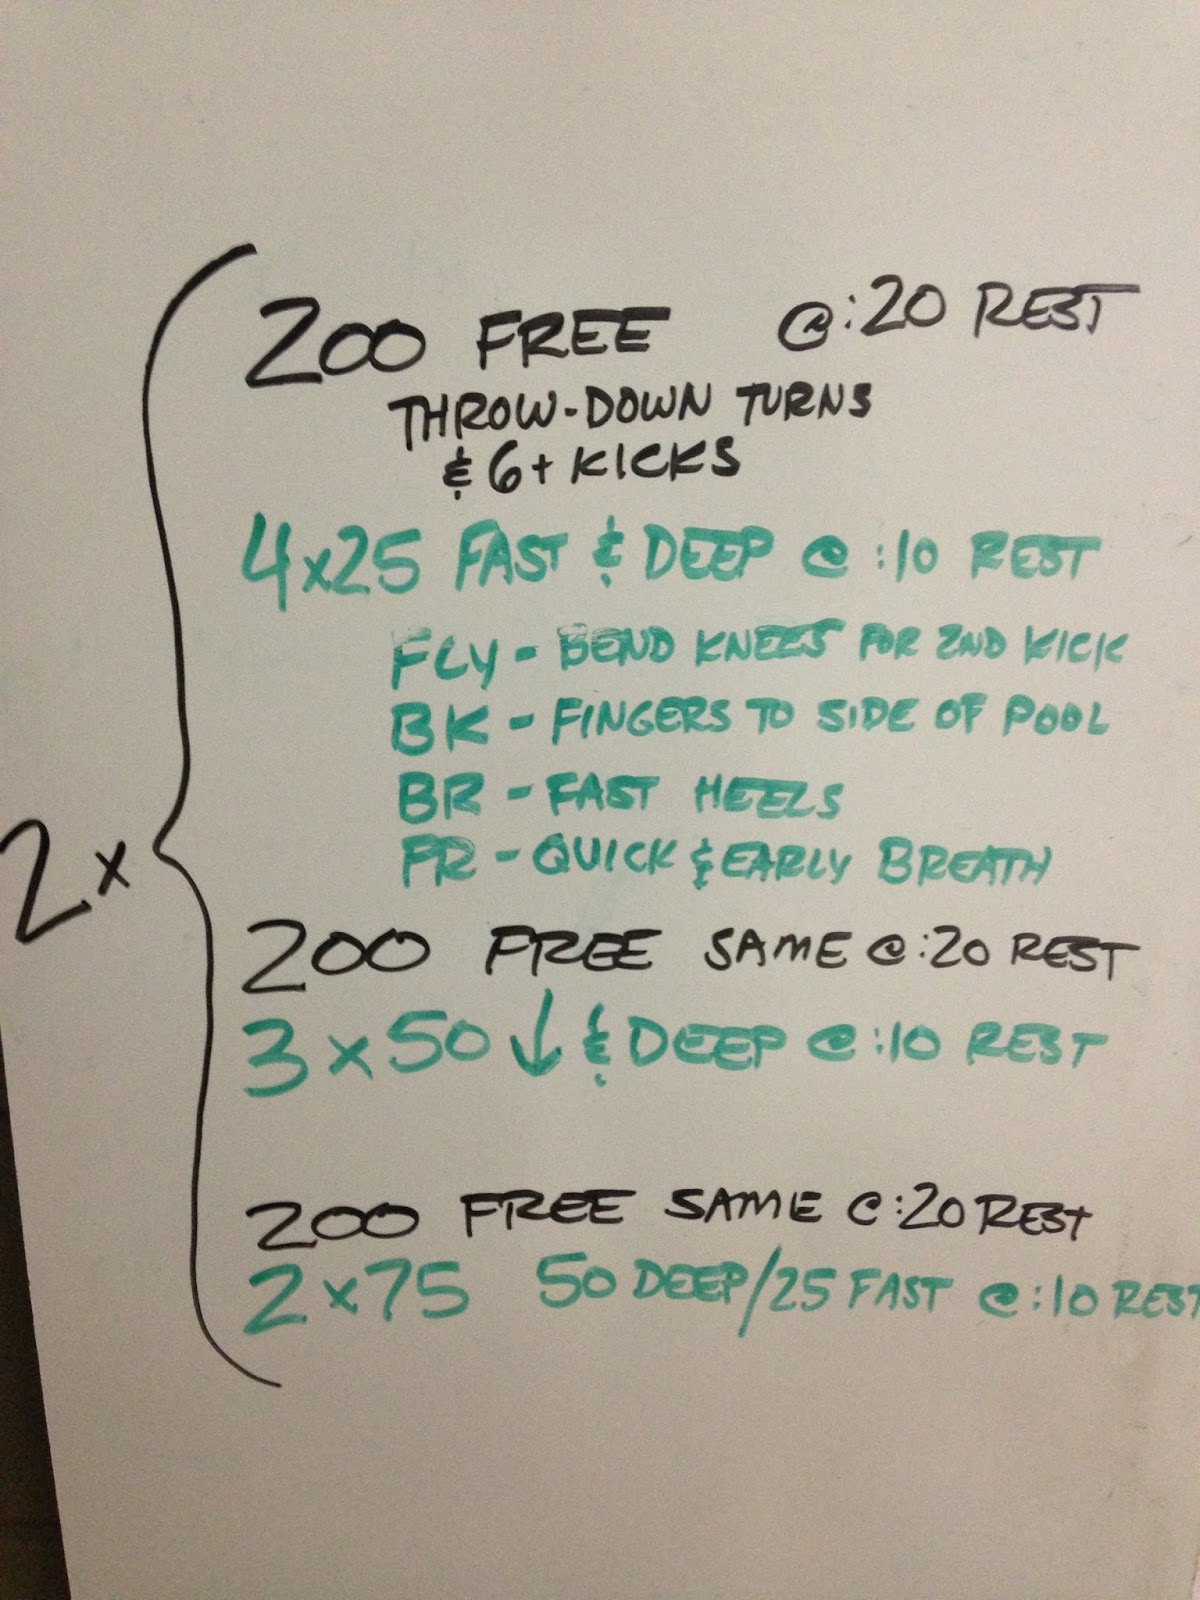 2x
200 FREE @:20 REST
THROW-DOWN TURNS
& 6+ KICKS
4x25 FAST & DEEP @ :10 REST
FLY - BEND KNEES FOR 2ND KICK
BK - FINGERS TO SIDE OF POOL
BR - FAST HEELS
FR - QUICK & EARLY BREATH
200 FREE SAME @:20 REST
3x50 ↓ & DEEP @:10 REST
200 FREE SAME @:20 REST
2x75 50 DEEP/25 FAST @:10 REST